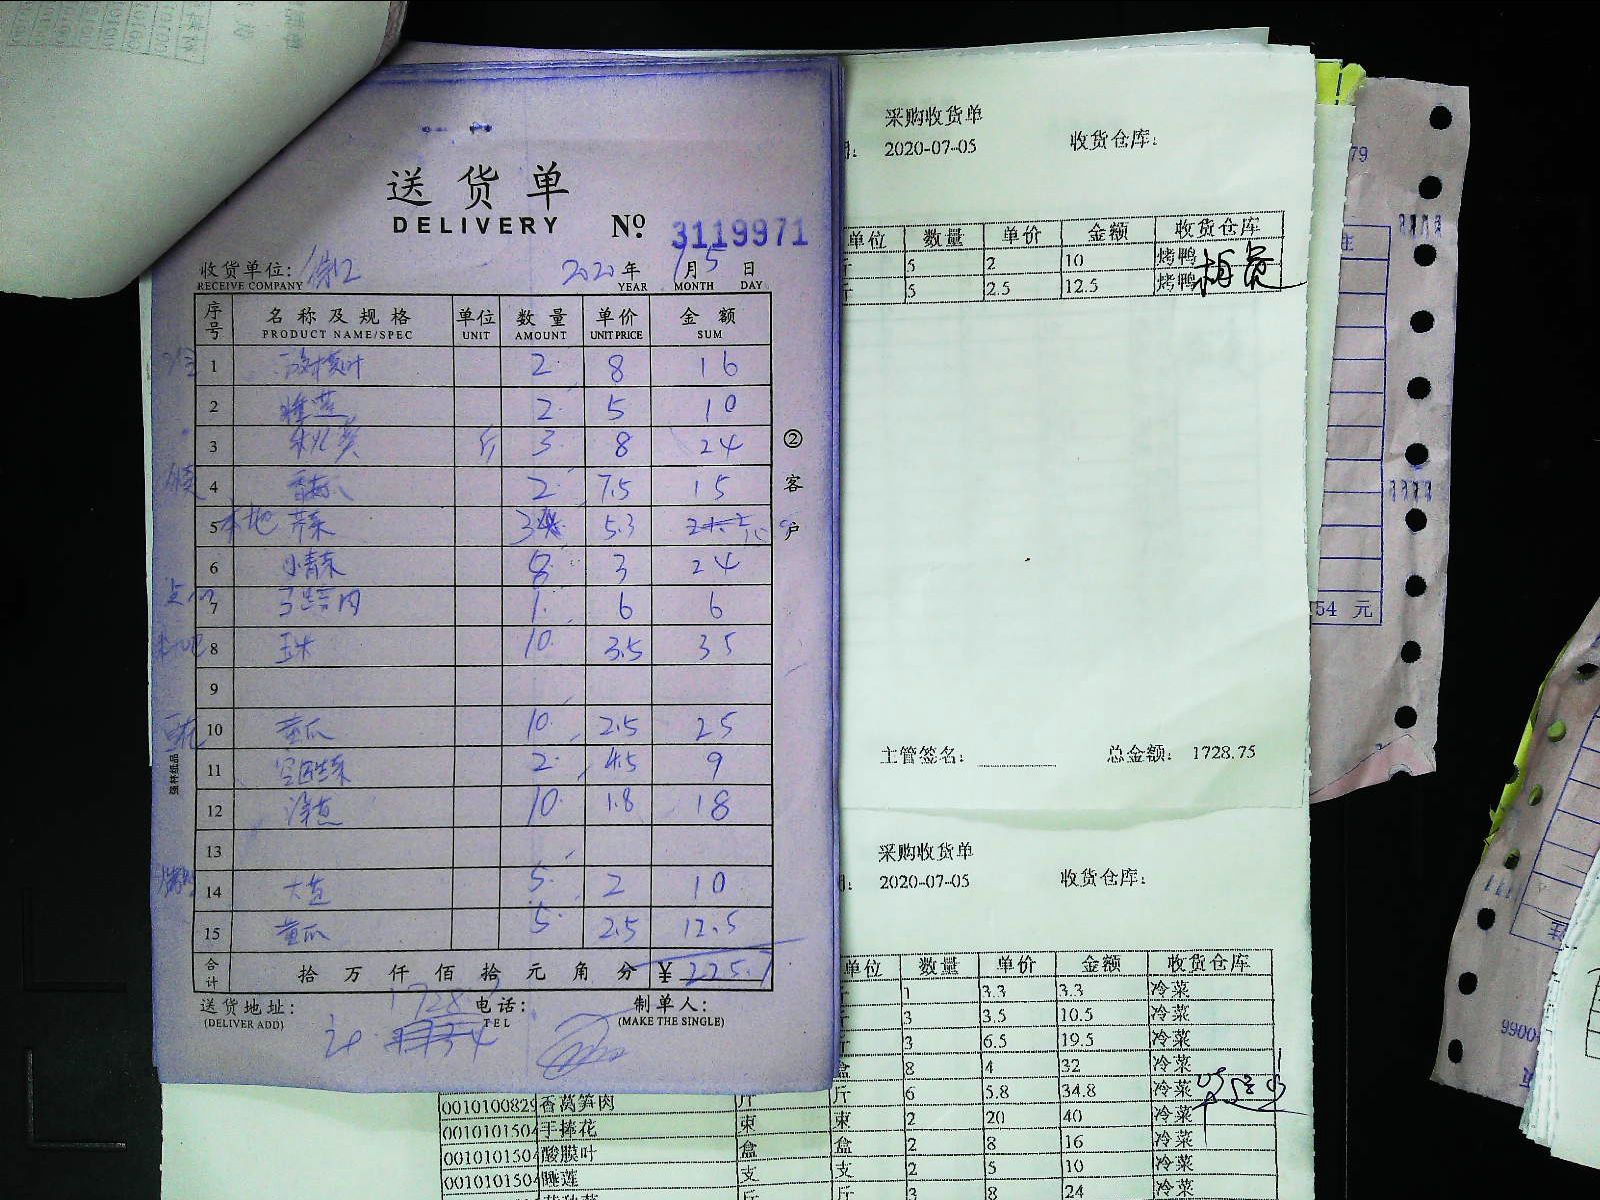 送货单
DELIVERY
№ 3119971
收货单位:
RECEIVE COMPANY
2020年 7月 5日
YEAR MONTH DAY
序号 名称及规格 单位 数量 单价 金额
PRODUCT NAME/SPEC UNIT AMOUNT UNIT PRICE SUM
1 2 8 16
2 睡莲 2 5 10
3 斤 3 8 24
4 2 7.5 15
5 本地 芹菜 3 5.3
6 小青菜 8 3 24
7 马蹄肉 1 6 6
8 玉米 10 3.5 35
9
10 黄瓜 10 2.5 25
11 2 4.5 9
12 10 1.8 18
13
14 大葱 5 2 10
15 黄瓜 5 2.5 12.5
合计 拾 万 仟 佰 拾 元 角 分 ¥
送货地址:
(DELIVER ADD)
电话:
TEL
制单人:
(MAKE THE SINGLE)
1728
② 客户
采购收货单
2020-07-05 收货仓库:
单位 数量 单价 金额 收货仓库
斤 5 2 10 烤鸭
斤 5 2.5 12.5 烤鸭
主管签名: 总金额: 1728.75
采购收货单
2020-07-05 收货仓库:
单位 数量 单价 金额 收货仓库
斤 1 3.3 3.3 冷菜
斤 3 3.5 10.5 冷菜
斤 3 6.5 19.5 冷菜
盒 8 4 32 冷菜
0010100829 香莴笋肉 斤 斤 6 5.8 34.8 冷菜
0010101504 手捧花 束 束 2 20 40 冷菜
0010101504 酸膜叶 盒 盒 2 8 16 冷菜
0010101504 睡莲 支 支 2 5 10 冷菜
斤 斤 3 8 24 冷菜
79
54 元
9900